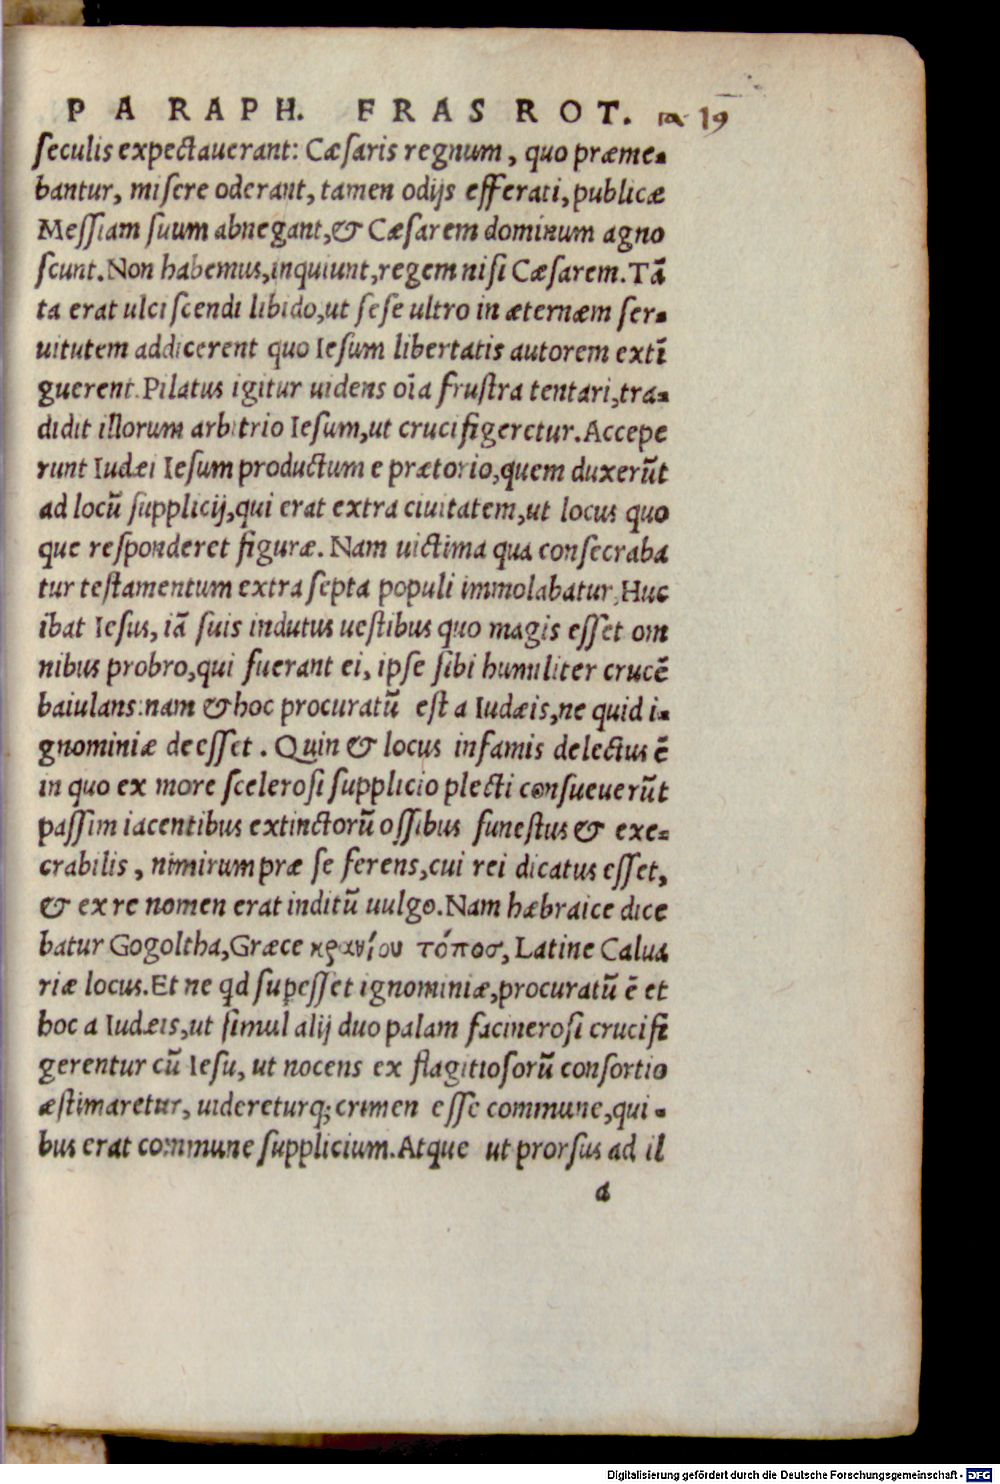 PARAPH. FRAS ROT. 19
seculis expectauerant: Cæsaris regnum, quo præme-
bantur, misere oderant, tamen odijs efferati, publicæ
Messiam suum abnegant, & Cæsarem dominum agno
scunt. Non habemus, inquiunt, regem nisi Cæsarem. Tā
ta erat ulciscendi libido, ut sese ultro in æternæm ser-
uitutem addicerent quo Iesum libertatis autorem extī
guerent. Pilatus igitur uidens oīa frustra tentari, tra-
didit illorum arbitrio Iesum, ut crucifigeretur. Accepe
runt Iudæi Iesum productum e prætorio, quem duxerūt
ad locū supplicij, qui erat extra ciuitatem, ut locus quo
que responderet figuræ. Nam uictima qua consecraba
tur testamentum extra septa populi immolabatur, Huc
ibat Iesus, iā suis indutus uestibus quo magis esset om
nibus probro, qui fuerant ei, ipse sibi humiliter crucē
baiulans: nam & hoc procuratū est a Iudæis, ne quid i-
gnominiæ deesset. Quin & locus infamis delectus ē
in quo ex more scelerosi supplicio plecti consueuerūt
passim iacentibus extinctorū ossibus funestus & exe-
crabilis, nimirum præ se ferens, cui rei dicatus esset,
& ex re nomen erat inditū uulgo. Nam hæbraice dice
batur Gogoltha, Græce κρανίου τόπος, Latine Calua
riæ locus. Et ne qd supesset ignominiæ, procuratū ē et
hoc a Iudæis, ut simul alij duo palam facinerosi crucifi
gerentur cū Iesu, ut nocens ex flagitiosorū consortio
æstimaretur, uidereturq; crimen esse commune, qui-
bus erat commune supplicium. Atque ut prorsus ad il
a
Digitalisierung gefördert durch die Deutsche Forschungsgemeinschaft - DFG